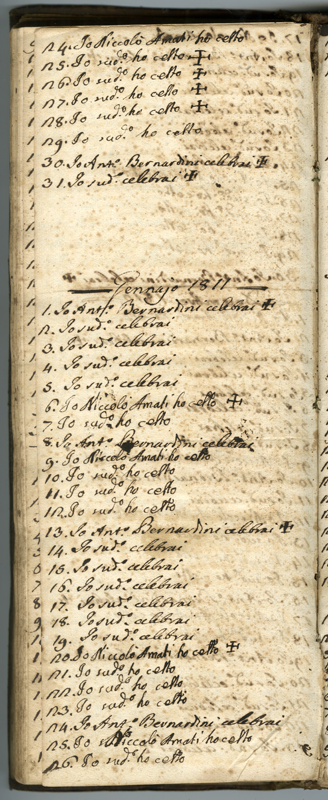 24. Io Niccolò Amati ho cełto
25. Io sud.º ho cełto ✠
26. Io sud.º ho cełto ✠
27. Io sud.º ho cełto ✠
28. Io sud.º ho cełto ✠
29. Io sud.º ho cełto
30. Io Ant.º Bernardini celebrai ✠
31. Io sud.º celebrai ✠
Gennajo 1817
1. Io Ant.º Bernardini celebrai ✠
2. Io sud.º celebrai
3. Io sud.º celebrai
4. Io sud.º celebrai
5. Io sud.º celebrai
6. Io Niccolò Amati ho cełto ✠
7. Io sud.º ho cełto
8. Io Ant.º Bernardini celebrai
9. Io Niccolò Amati ho cełto
10. Io sud.º ho cełto
11. Io sud.º ho cełto
12. Io sud.º ho cełto
13. Io Ant.º Bernardini celebrai ✠
14. Io sud.º celebrai
15. Io sud.º celebrai
16. Io sud.º celebrai
17. Io sud.º celebrai
18. Io sud.º celebrai
19. Io sud.º celebrai
20. Io Niccolò Amati ho cełto ✠
21. Io sud.º ho cełto
22. Io sud.º ho cełto
23. Io sud.º ho cełto
24. Io Ant.º Bernardini celebrai
25. Io Niccolò Amati ho cełto
26. Io sud.º ho cełto